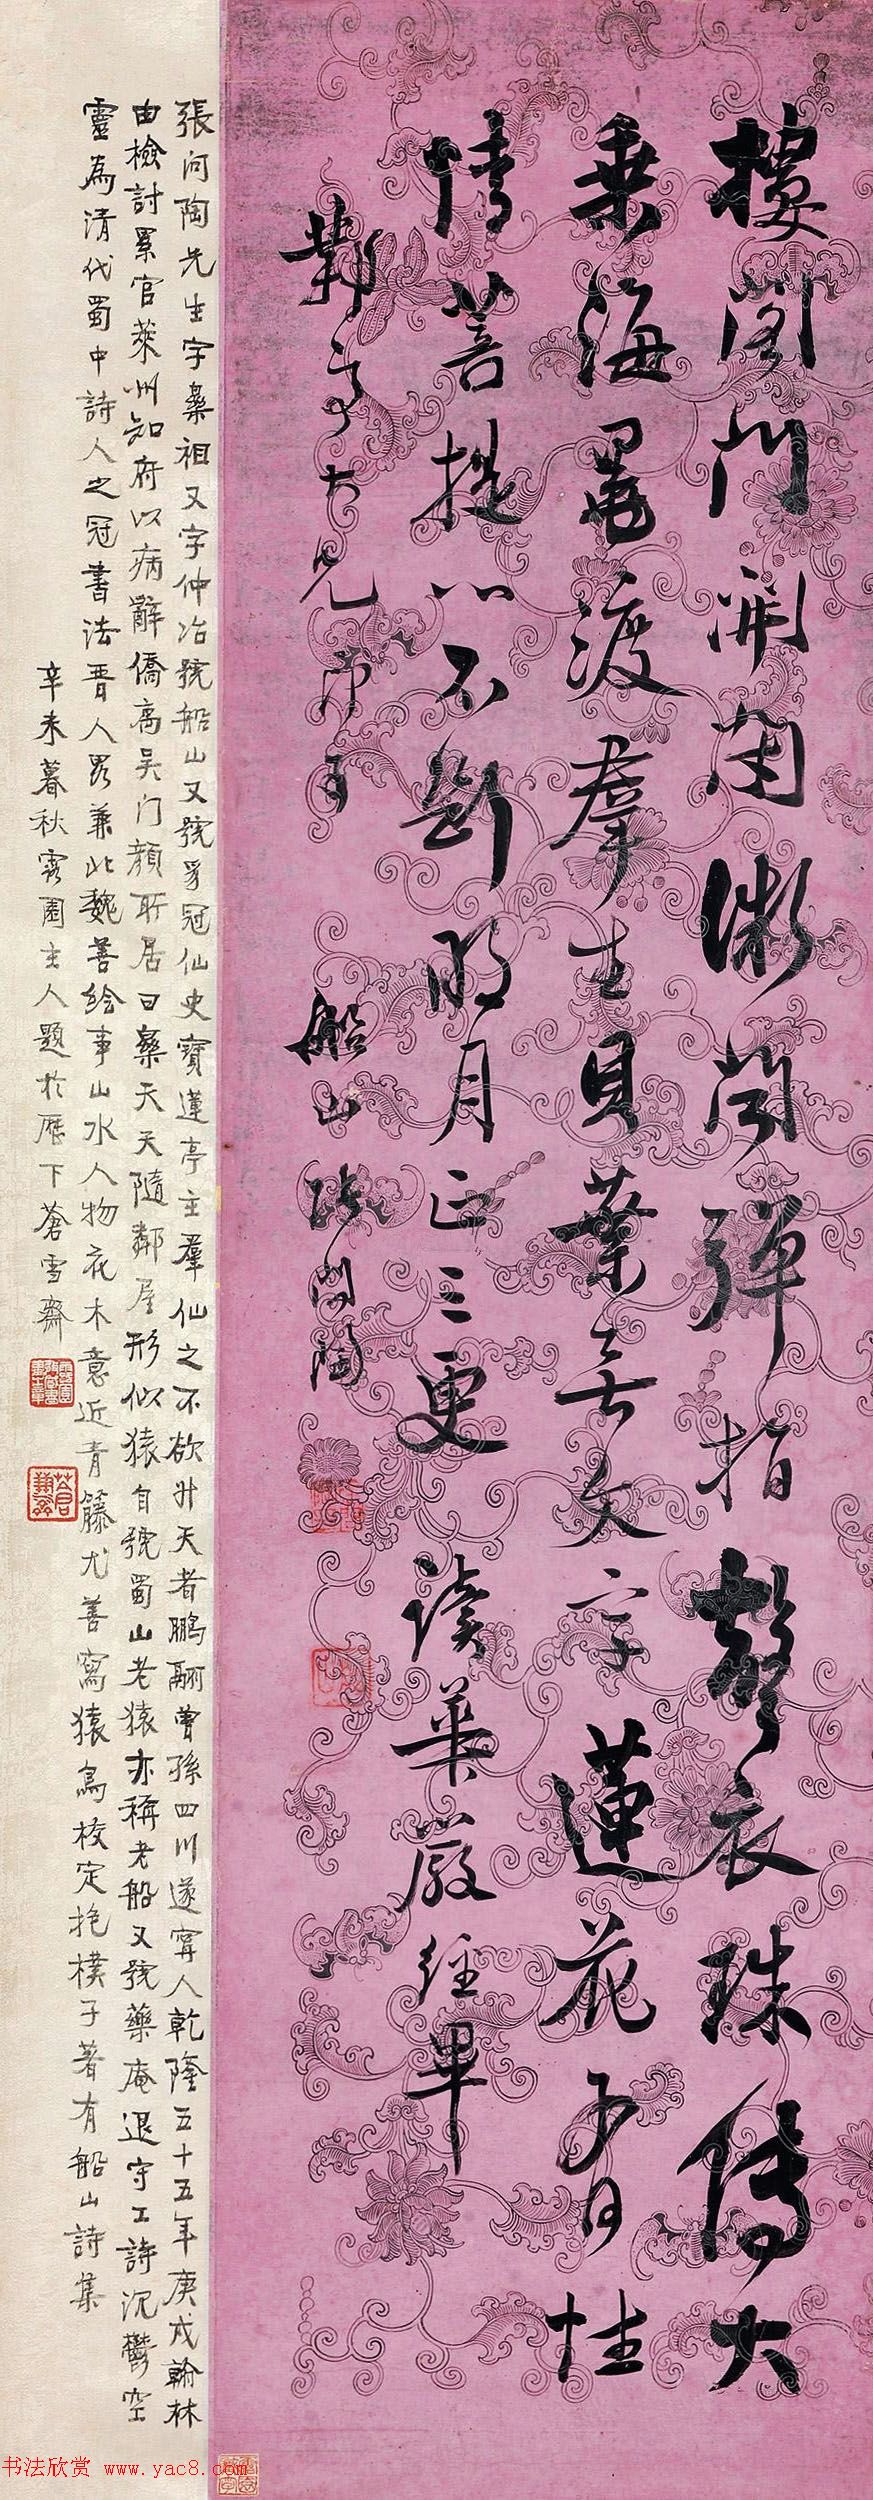 樓閣門開閉㣲聞彈指聲衣珠傳大
乘海黽渡羣生貝葉無文字蓮花有性
情菩提心不斷明月正三更 讀華嚴經畢
大兄正 船山張問陶
張問陶先生字樂祖又字仲冶號船山又號豸冠仙史寶蓮亭主羣仙之不欲升天者鵬翮曾孫四川遂寧人乾隆五十五年庚戌翰林
由檢討累官萊州知府以病辭僑寓吳门顔所居曰樂天天隨鄰屋形似猿自號蜀山老猿亦稱老船又號藥庵退守工詩沉鬱空
靈為清代蜀中詩人之冠書法晋人畧兼北魏善繪事山水人物花木意近青籐尤善寫猿鳥校定抱樸子著有船山詩集
辛未暮秋露園主人題於歷下蒼雪齋
书法欣赏 www.yac8.com